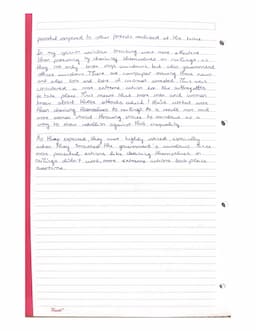 peaceful compared to other protests mentioned at the time.
In my opinion window smashing was more effective
than protesting by chaining themselves on railings as
they not only broke shop windows but also government
offices windows. There are newspapers showing these news
and also lots and lots of women arrested. This was
considered a more extreme action for the suffragettes
to take place. This means that more men and women
know about these attacks which I think worked more
than chaining themselves to railings. As a result men and
more women would throwing stones to windows as a
way to show rebellion against this inequality.
As they exposed, they were highly noticed, especially
when they smashed the government's windows. Since
more peaceful actions like chaining themselves on
railings didn't work, more extreme actions took place
overtime.